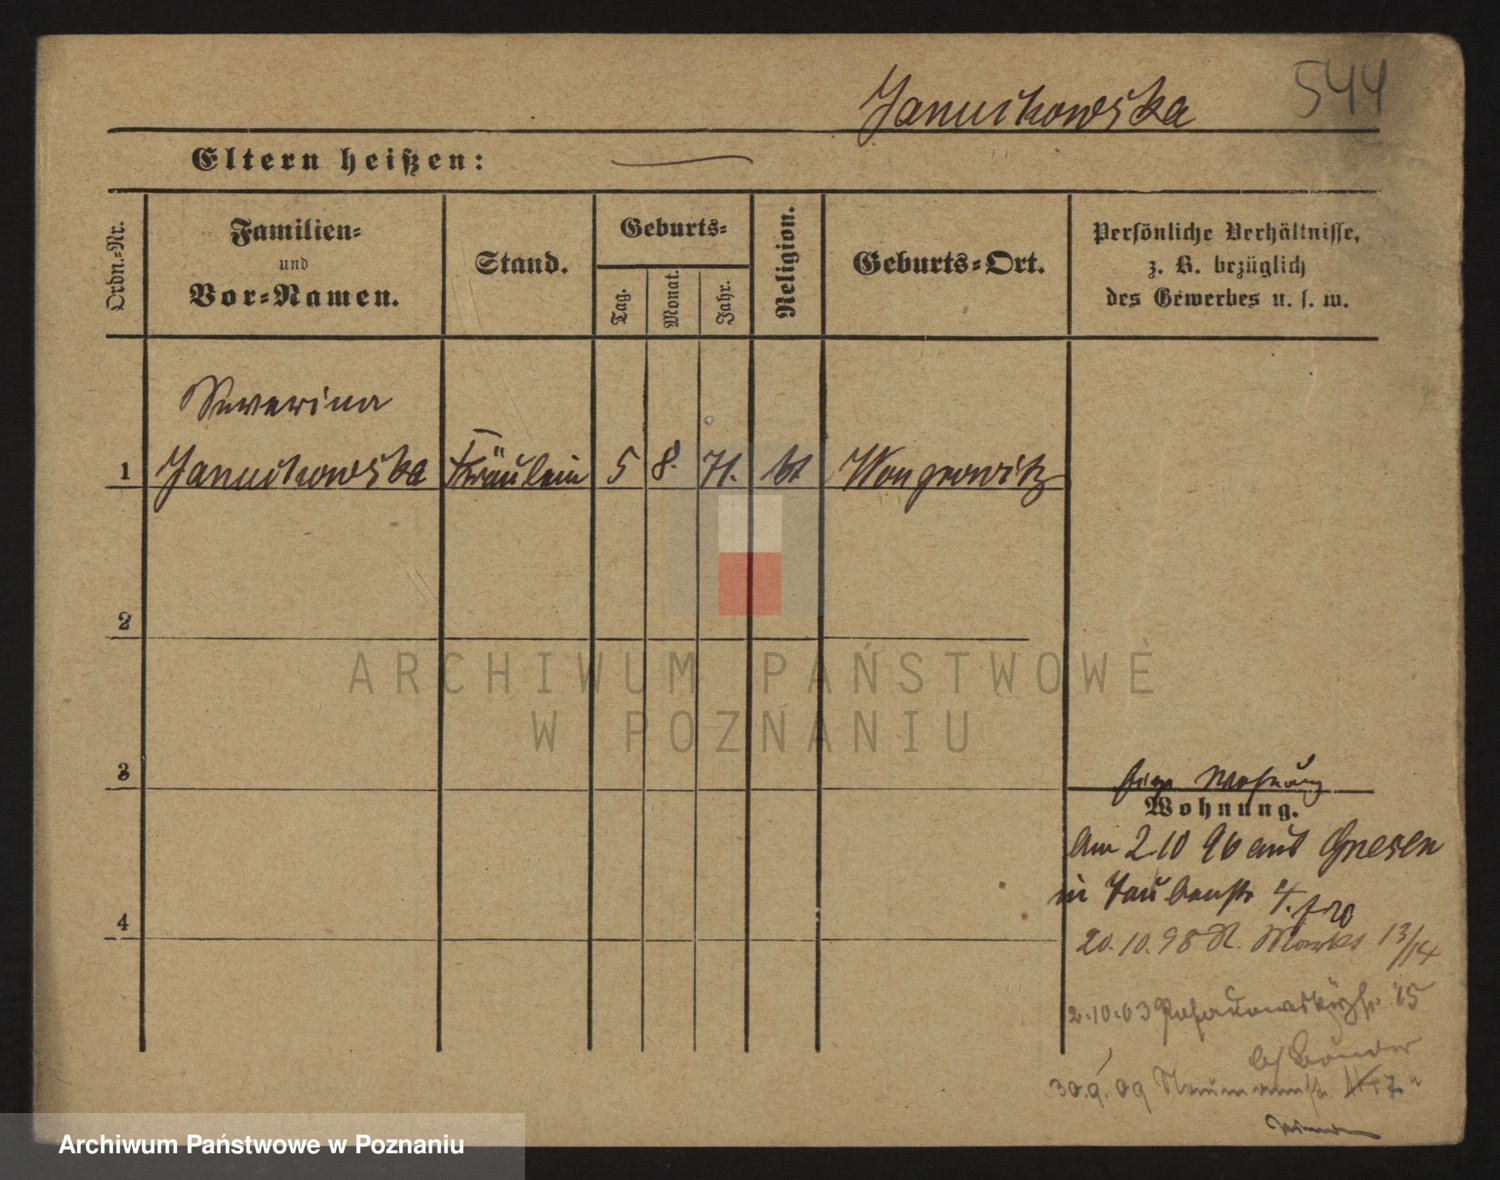 Januchowska 544
Eltern heißen:
Ordn.-Nr.
Familien-
und
Vor-Namen.
Stand.
Geburts-
Tag.
Monat.
Jahr.
Religion.
Geburts-Ort.
Persönliche Verhältnisse,
z. B. bezüglich
des Gewerbes u. s. w.
Severina
1 Januchowska Fräulein 5 8. 71. kt Wongrowitz
2
3
Wohnung
Wohnung.
4
Am 2 10 96 aus Gnesen
in Taubenstr 4.
20.10.98 N. Markt 13/14
2.10.03 15
30.9.09 Naumannstr. 17
ARCHIWUM PAŃSTWOWE
W POZNANIU
Archiwum Państwowe w Poznaniu